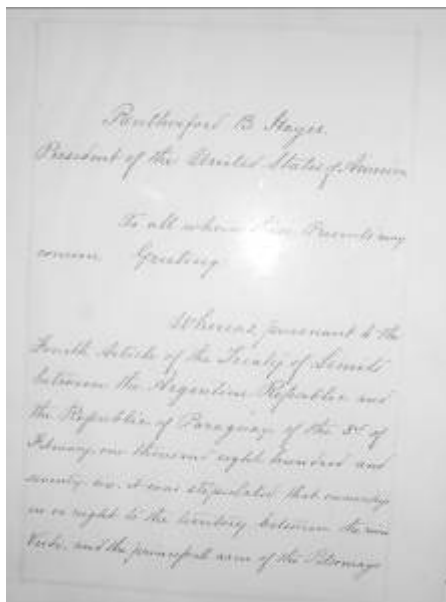 Rutherford B Hayes.
President of the United States of America
To all whom these Presents may
concern Greeting
Whereas, pursuant to the
Fourth Article of the Treaty of Limits
between the Argentine Republic and
the Republic of Paraguay of the 3d of
February, one thousand eight hundred and
seventy six, it was stipulated that ownership
in or right to the territory between the river
Verde, and the principal arm of the Pilcomayo